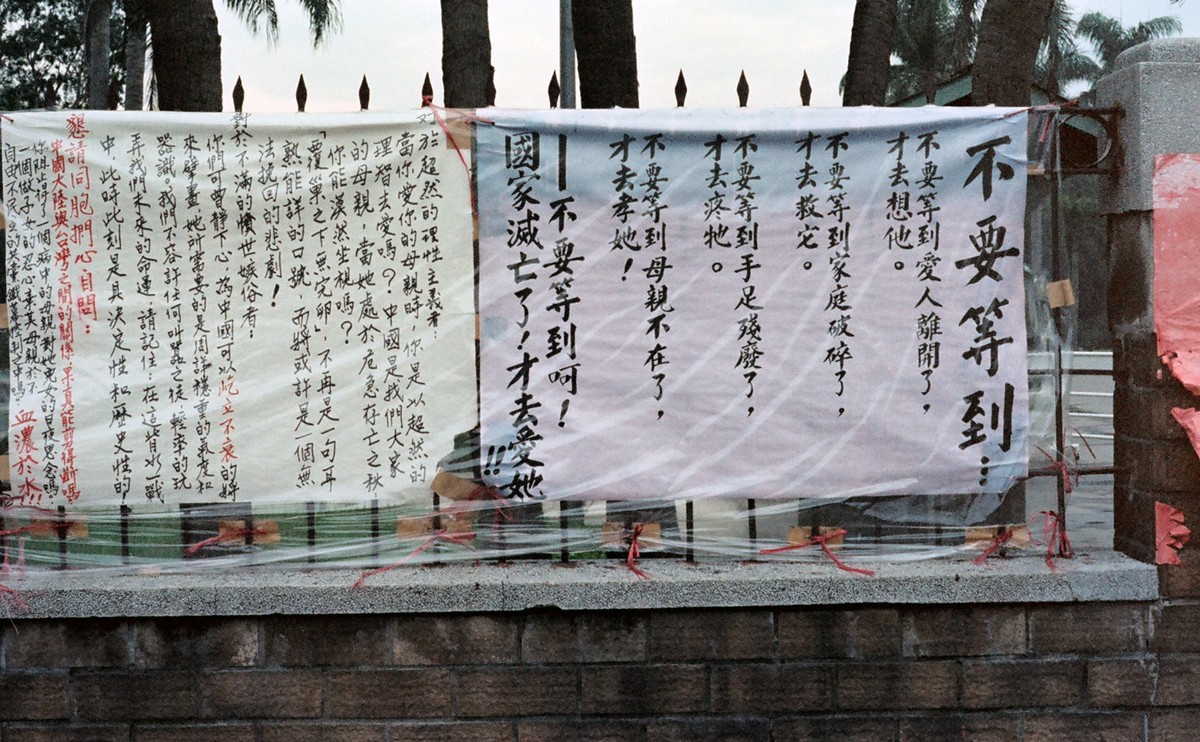 不要等到…
不要等到愛人離開了，
才去想他。
不要等到家庭破碎了，
才去救它。
不要等到手足殘廢了，
才去疼牠。
不要等到母親不在了，
才去孝她！
—不要等到呵！
國家滅亡了！才去愛她!!
於超然的理性主義者：
當你愛你的母親時，你是以超然的
理智去愛嗎？中國是我們大家
的母親，當她處於危急存亡之秋，
你能漠然坐視嗎？
「覆巢之下無完卵」，不再是一句耳
熟能詳的口號，而將或許是一個無
法挽回的悲劇！
對於不滿的憤世嫉俗者：
你們可曾靜下心，為中國可以屹立不衰的將
來擘畫，她所需要的是周詳穩重的氣度和
器識。我們不容許任何叫囂之徒，輕率的玩
弄我們未來的命運，請記住，在這背水一戰
中，此時此刻是具決定性和歷史性的
懇請同胞捫心自問：
中國大陸與台灣之間的關係果真能剪得斷嗎
你阻擋得了一個病中的母親對她兒女的日夜思念嗎
一個做子女的忍心棄其母親於不
自由不民
血濃於水!!